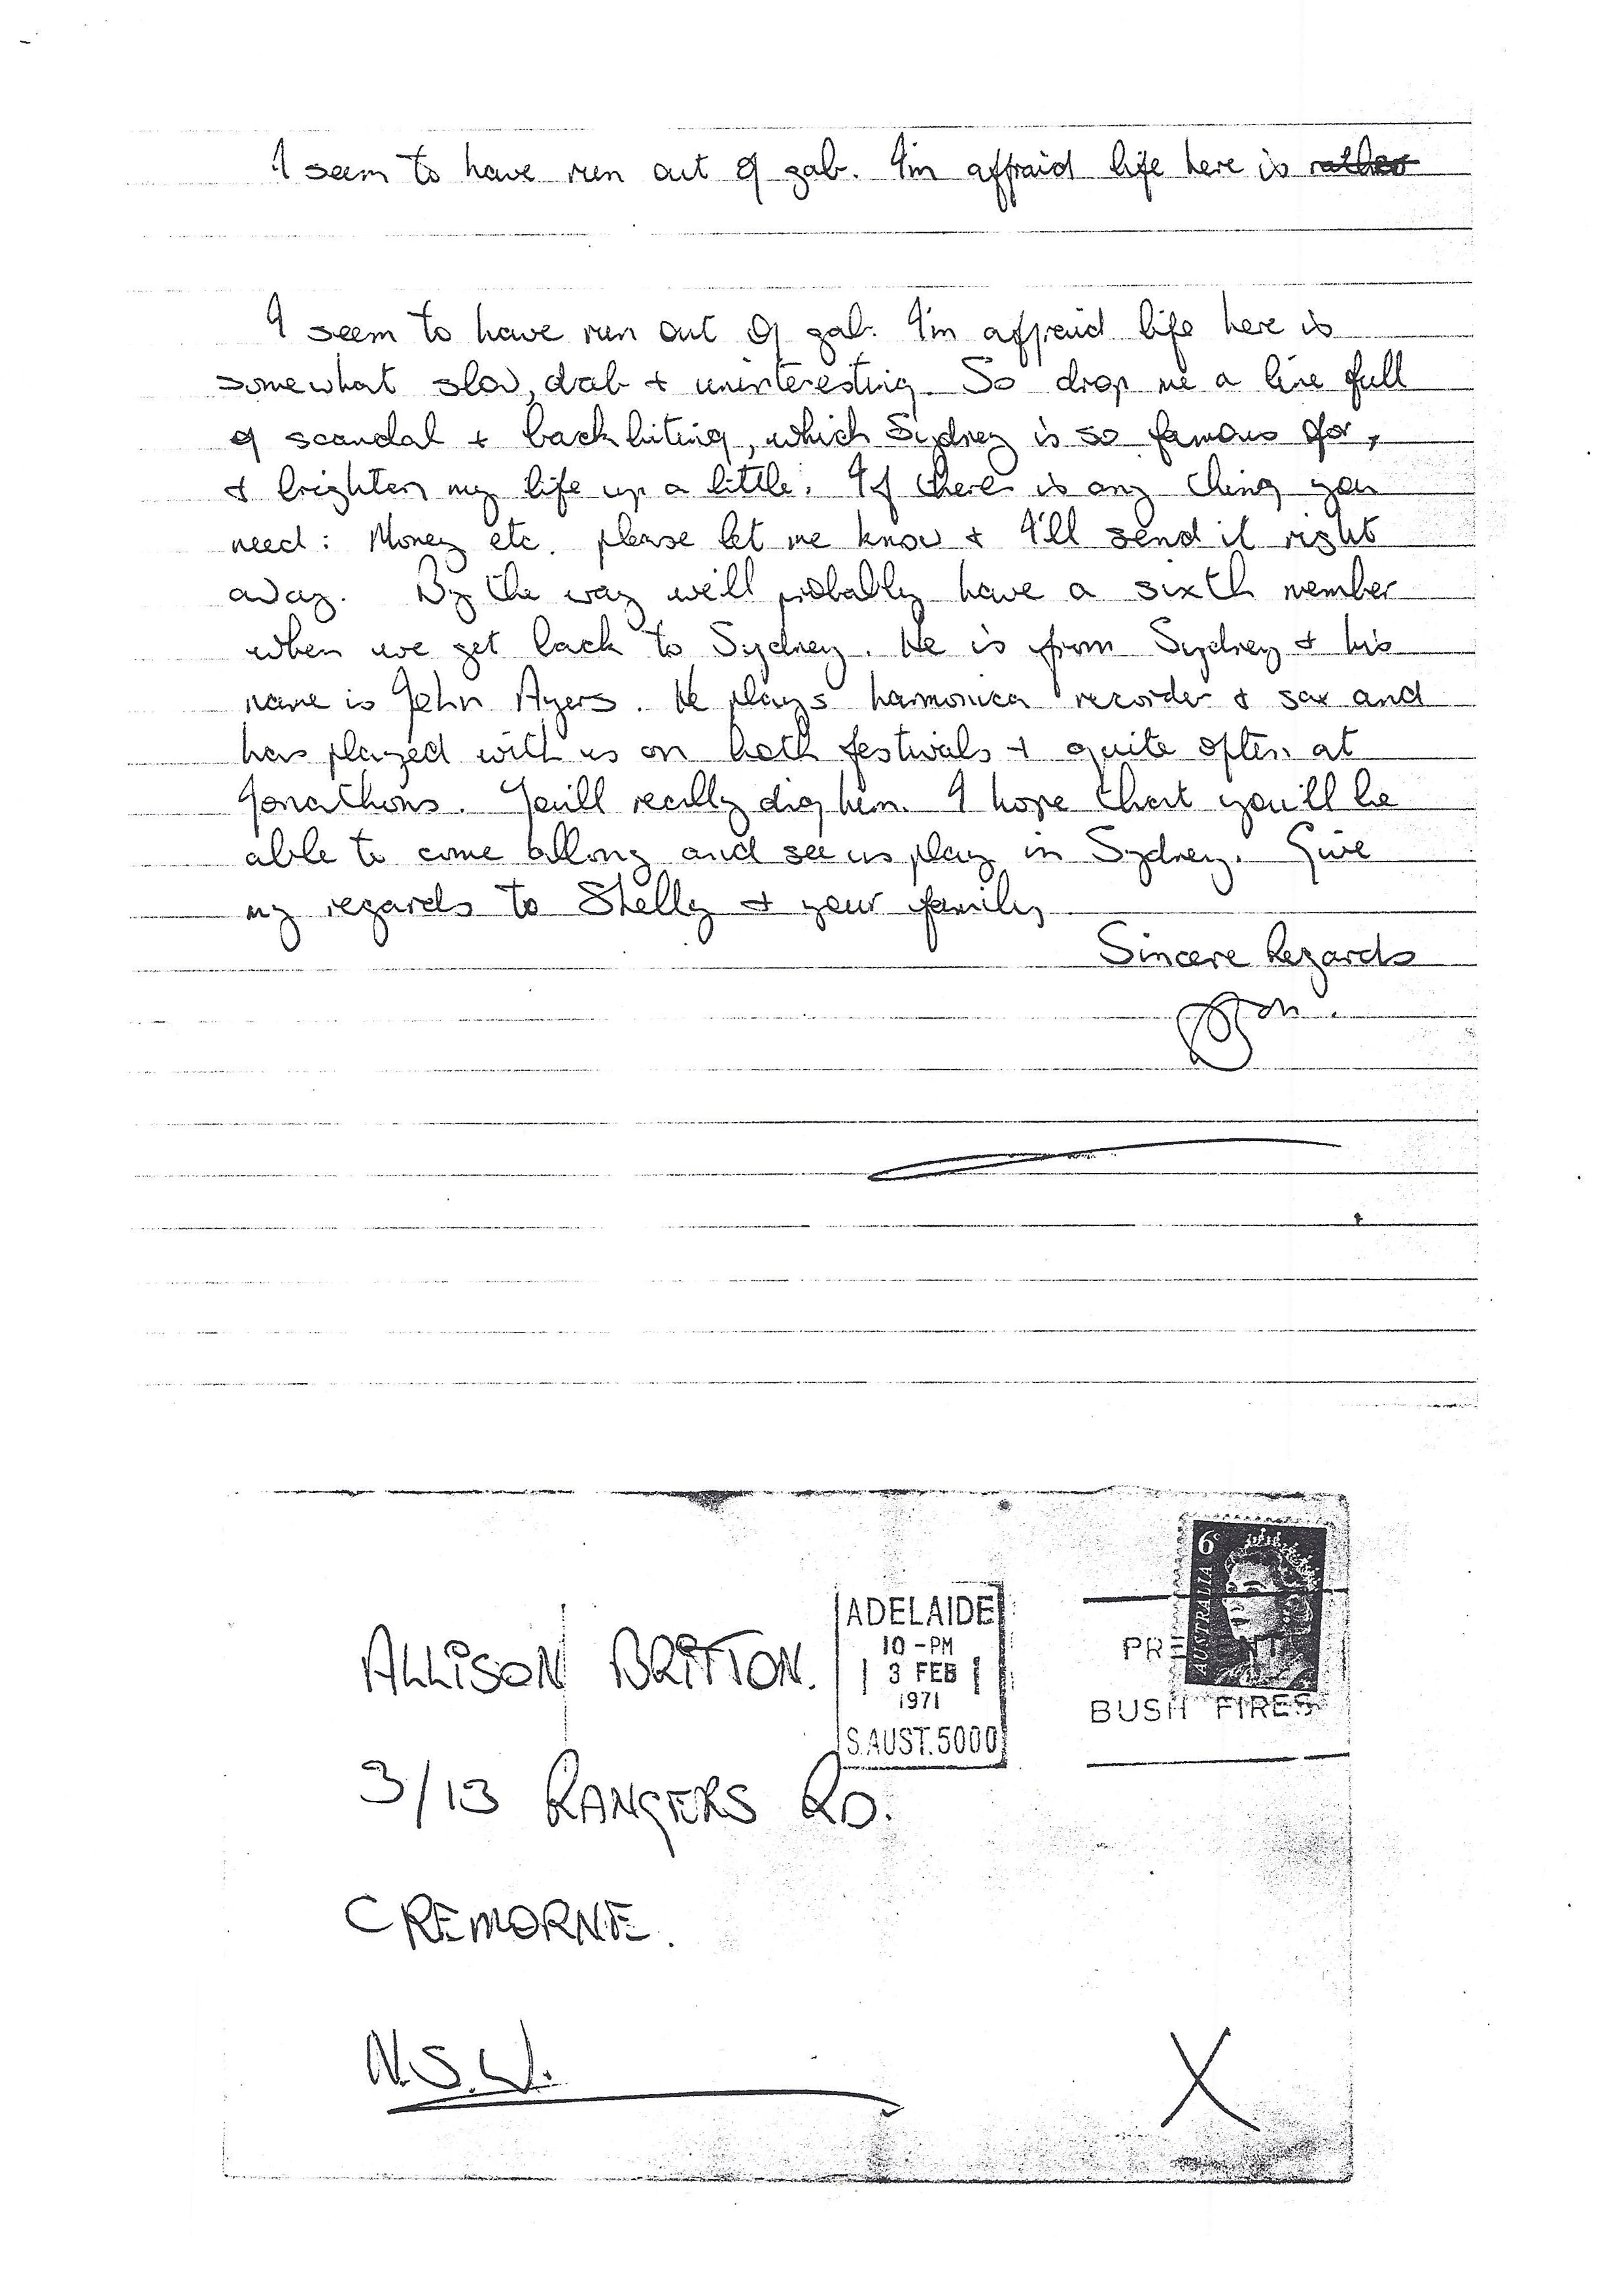 I seem to have run out of gab. I'm affraid life here is rather
I seem to have run out of gab. I'm affraid life here is
somewhat slow, drab + uninteresting. So drop me a line full
of scandal + backbiting, which Sydney is so famous for,
+ brighten my life up a little. If there is any thing you
need: Money etc. please let me know + I'll send it right
away. By the way we'll probably have a sixth member
when we get back to Sydney. He is from Sydney + his
name is John Ayers. He plays harmonica recorder + sax and
has played with us on both festivals + quite often at
Jonathons. You'll really dig him. I hope that you'll be
able to come allong and see us play in Sydney. Give
my regards to Shelly + your family
Sincere Regards
Bon.
6c
AUSTRALIA
ADELAIDE
10-PM
3 FEB
1971
S.AUST.5000
PREVENT
BUSH FIRES
ALLISON BRITTON.
3/13 RANGERS RD.
CREMORNE.
N.S.W.
X